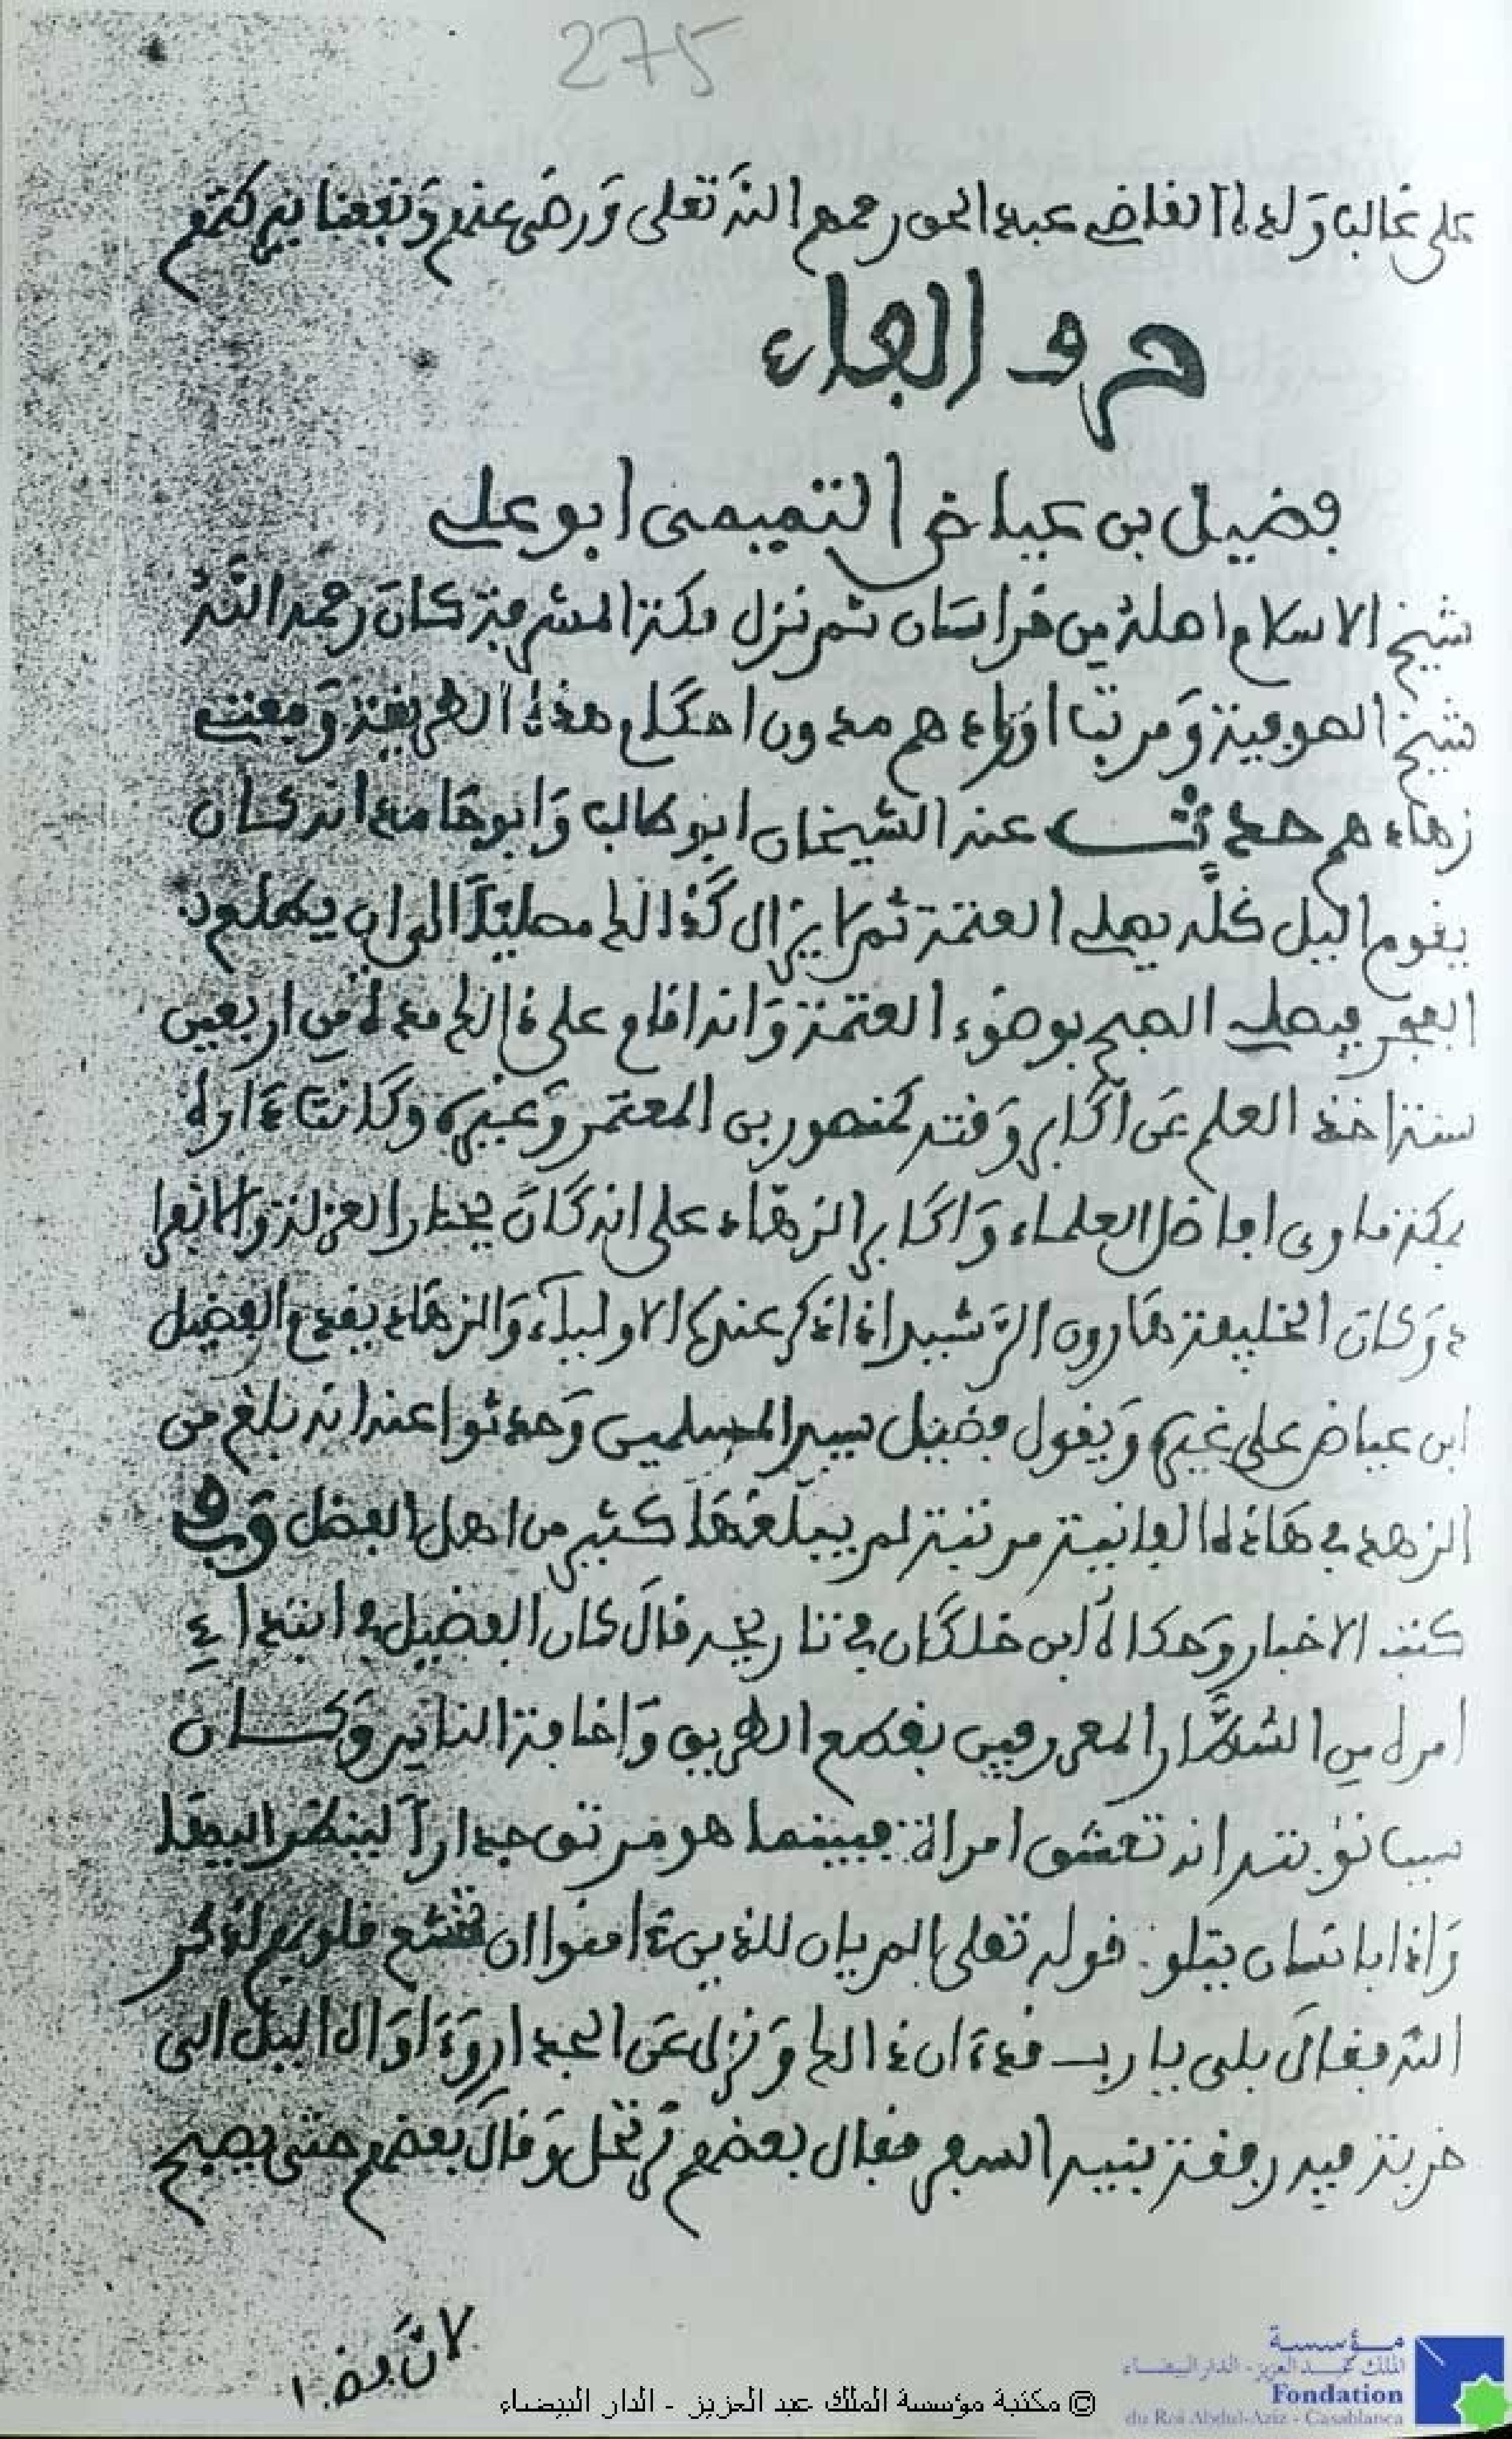 275
على غالب ولده القاضي عبد الحق رحمهم الله تعلى ورضي عنهم ونفعنا ببركتهم
حرف الفاء
فضيل بن عياض التميمي ابو علي
شيخ الاسلام اصله من خراسان ثم نزل مكة المشرفة كان رحمه الله
شيخ الصوفية ومرتب اورادهم مدون احكام هذه الطريقة
زهادهم حدث عنه الشيخان ابو طالب وابو حامد انه كان
يقوم اليل كله يصلي العتمة ثم لا يزال كذالك مصليًا الى ان يطلع
الفجر فيصلي الصبح بوضوء العتمة وانه اقام على ذالك مدة من اربعين
سنة اخذ العلم عن اكابر وقته كمنصور بن المعتمر وغيره وكانت داره
بمكة ماوى افاضل العلماء واكابر الزهاد على انه كان يختار العزلة والانفرا
د وكان الخليفة هارون الرشيد اذا ذكر عنده الاولياء والزهاد يقدم الفضيل
ابن عياض على غيره ويقول فضيل سيد المسلمين وحدثوا عنه انه بلغ من
الزهد في هاذه الفانية مرتبة لم يبلغها كثير من اهل الفضل وفي
كتب الاخبار وحكاه ابن خلكان في تاريخه قال كان الفضيل في ابتداء
امره من الشطار المعروفين بقطع الطريق واخافة الناس وكان
سبب توبته انه تعشق امراة فبينما هو مرتق جدارا لينظر اليها
واذا بانسان يتلو قوله تعلى الم يان للذين ءامنوا ان تخشع قلوبهم لذكر
الله فقال بلى يا رب قد ءان ذالك ونزل عن الجدار وءاواه اليل الى
خربة فيه رفقة بنية السفر فقال بعضهم نرتحل وقال بعضهم حتى يصبح
لان فضـ
© مكتبة مؤسسة الملك عبد العزيز - الدار البيضاء
مؤسسة
الملك عبد العزيز - الدار البيضاء
Fondation
du Roi Abdul-Aziz - Casablanca